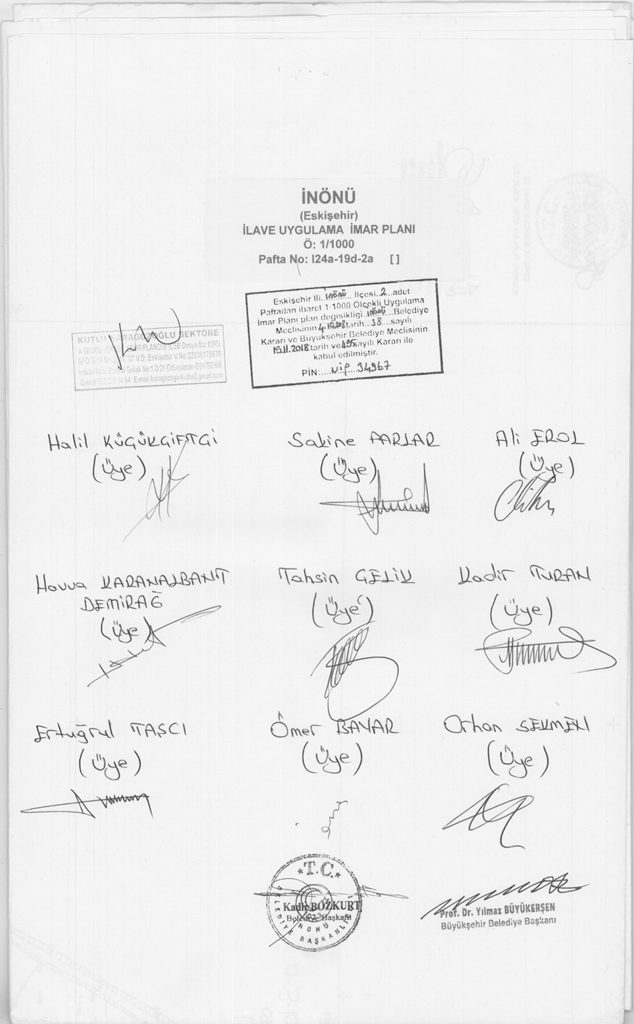 İNÖNÜ
(Eskişehir)
İLAVE UYGULAMA İMAR PLANI
Ö: 1/1000
Pafta No: I24a-19d-2a [ ]
Eskişehir İli, İNÖNÜ İlçesi, 2 adet
Paftadan ibaret 1-1000 Ölçekli Uygulama
İmar Planı plan değişikliği İNÖNÜ Belediye
Meclisinin tarih 38 sayılı
Kararı ve Büyükşehir Belediye Meclisinin
19.11.2018 tarih ve 495 sayılı Kararı ile
kabul edilmiştir.
PİN: UİP 34967
KUTLU SEKTÖRE
Halil KÜÇÜKÇİFTÇİ
(Üye)
Sakine PARLAR
(Üye)
Ali EROL
(Üye)
Havva KARANALBANT
DEMİRAĞ
(Üye)
Tahsin ÇELİK
(Üye)
Kadir TURAN
(Üye)
Ertuğrul TAŞCI
(Üye)
Ömer BAYAR
(Üye)
Orhan SEKMEN
(Üye)
T.C.
Kadir BOZKURT
Belediye Başkanı
İNÖNÜ
BELEDİYE BAŞKANLIĞI
Prof. Dr. Yılmaz BÜYÜKERŞEN
Büyükşehir Belediye Başkanı